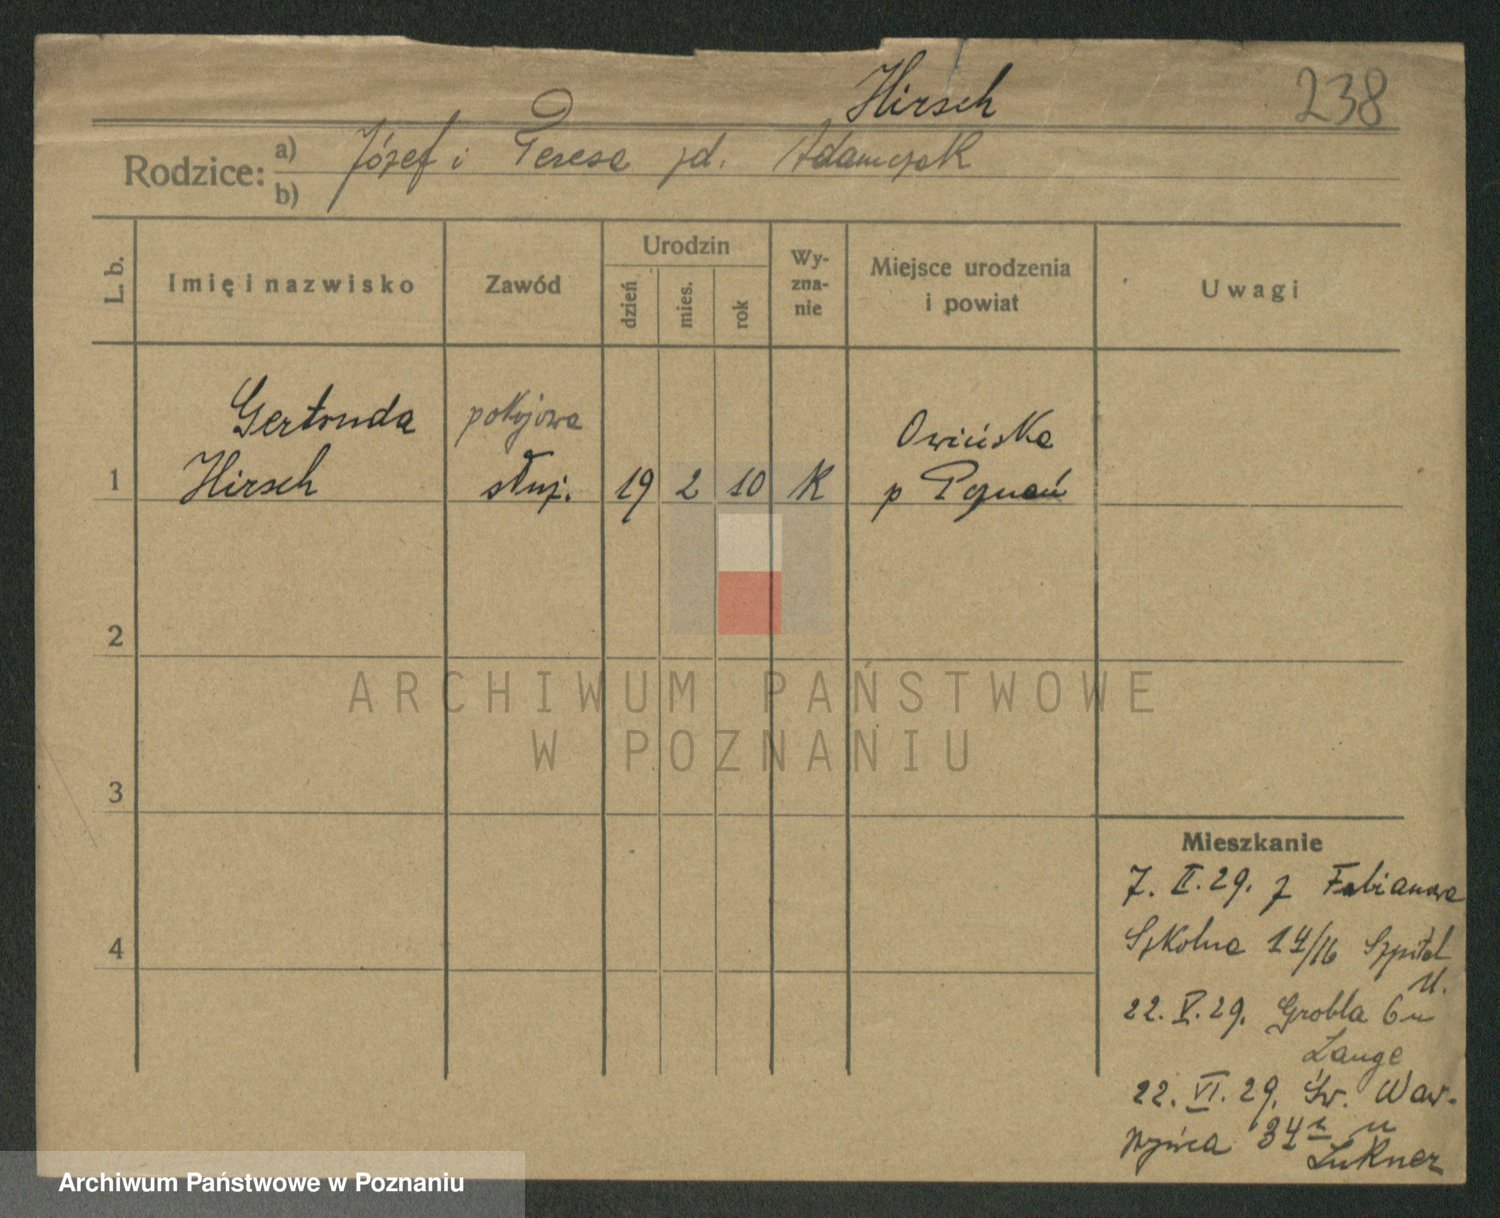 Hirsch
238
Rodzice: a) Józef i Teresa zd. Adamczak
b)
L. b.
Imię i nazwisko
Zawód
Urodzin
dzień
mies.
rok
Wy-
zna-
nie
Miejsce urodzenia
i powiat
Uwagi
Gertruda pokojowa Owińska
1 Hirsch służ. 19 2 10 K p Poznań
2
3
4
Mieszkanie
7. II. 29. z Fabianowa
Szkolna 14/16 Szpital
M.
22. V. 29. Grobla 6 u
Lange
22. VI. 29. Św. Waw-
rzyńca 34 u
Lukner
ARCHIWUM PAŃSTWOWE
W POZNANIU
Archiwum Państwowe w Poznaniu